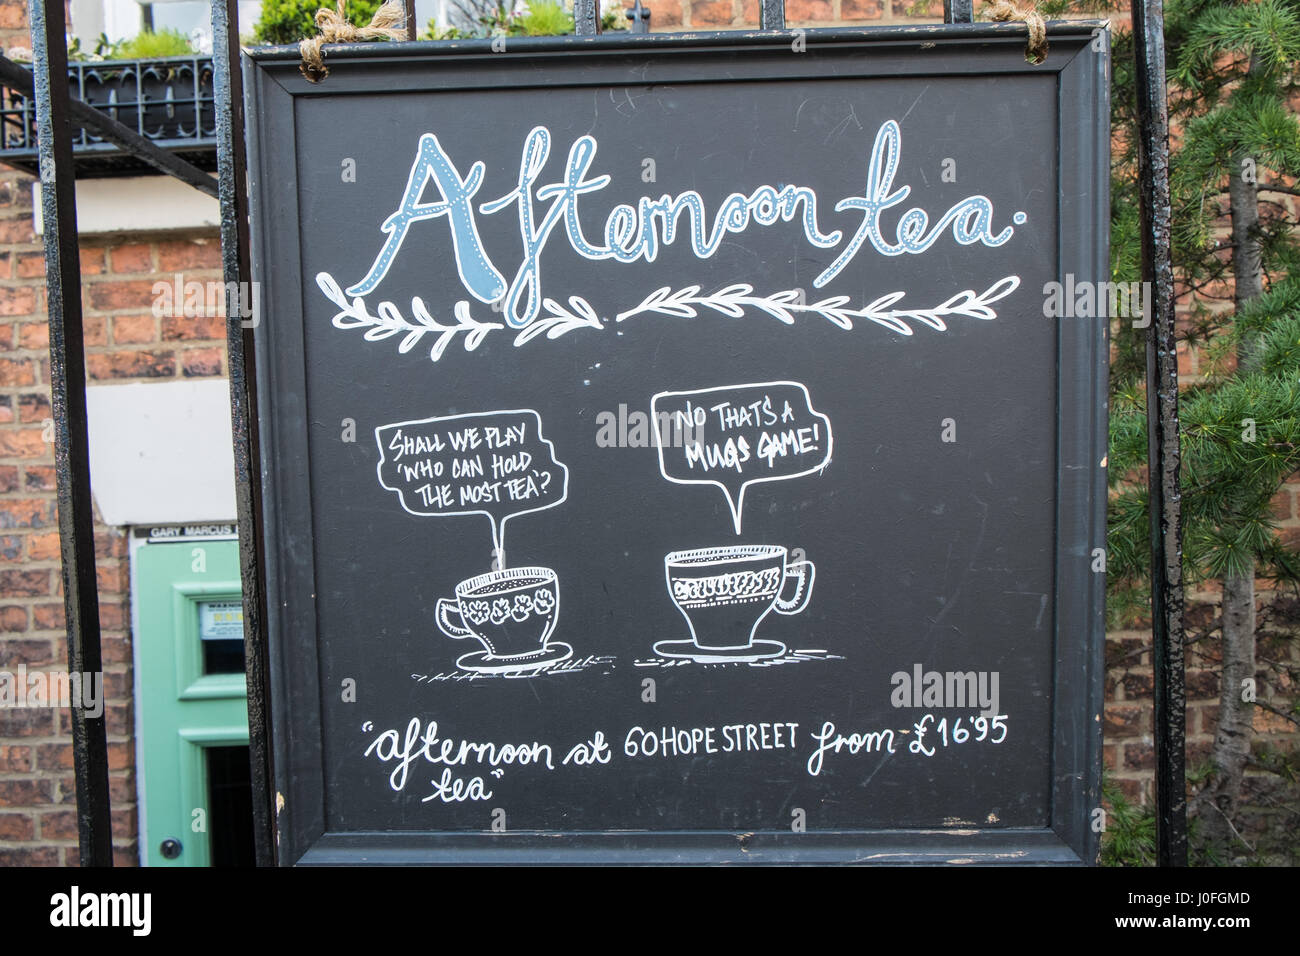 Afternoon tea.
SHALL WE PLAY
'WHO CAN HOLD
THE MOST TEA'?
NO THAT'S A
MUGS GAME!
"afternoon at 60 HOPE STREET from £16'95
tea"
GARY MARCUS
a alamy stock photo
alamy
Image ID: J0FGMD
www.alamy.com